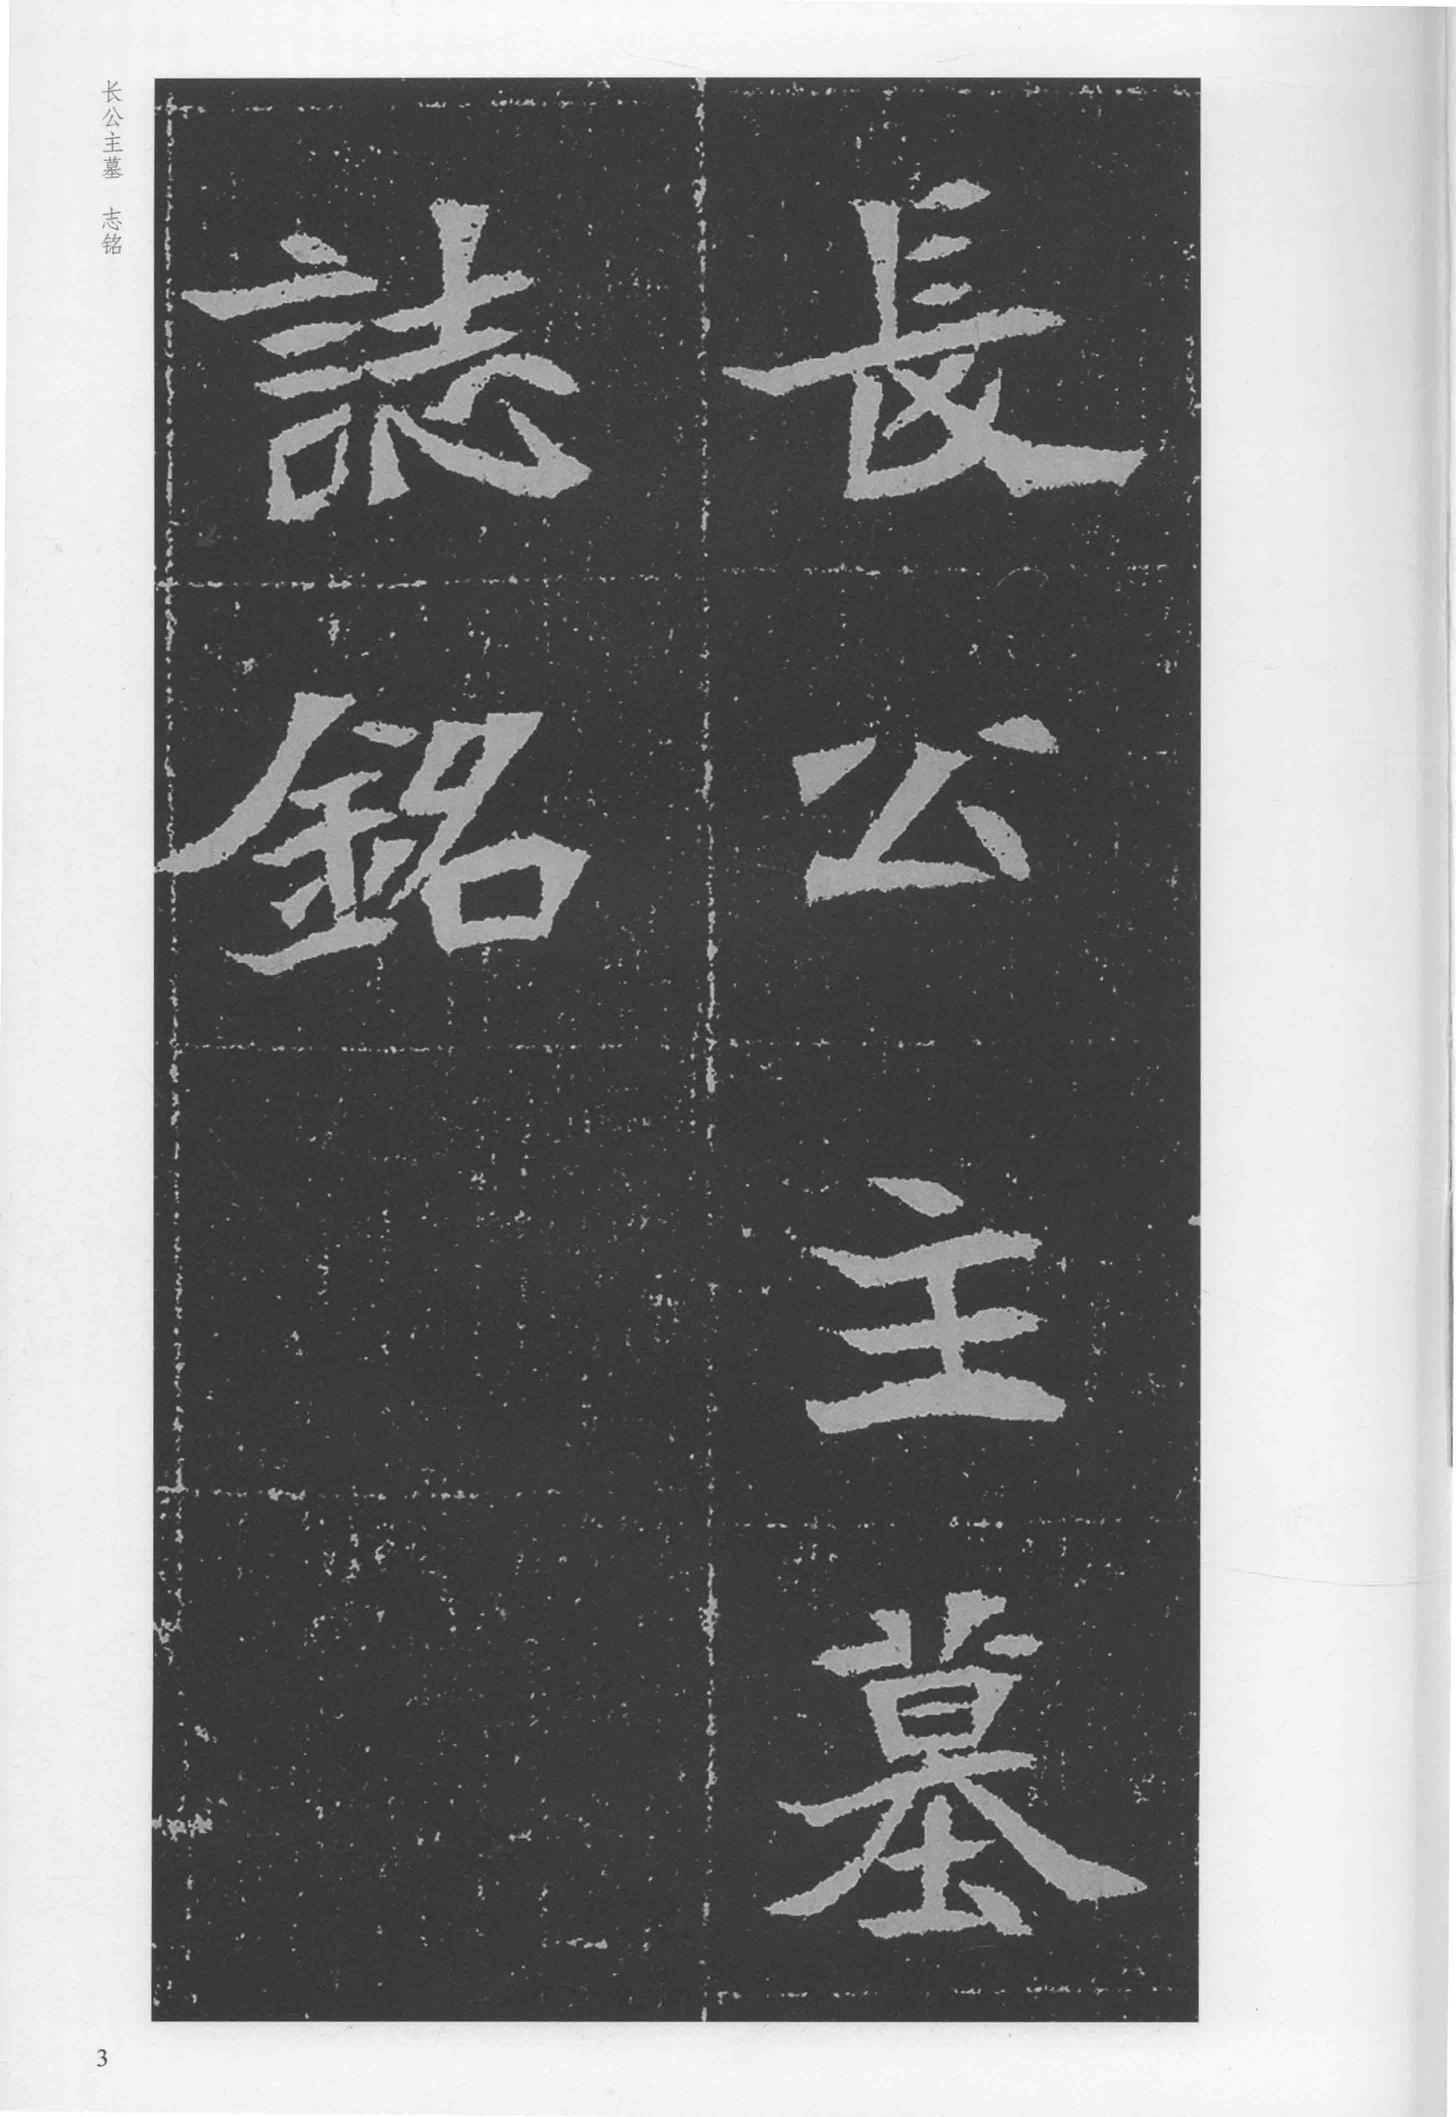 長公主墓
誌銘
长公主墓 志铭
3